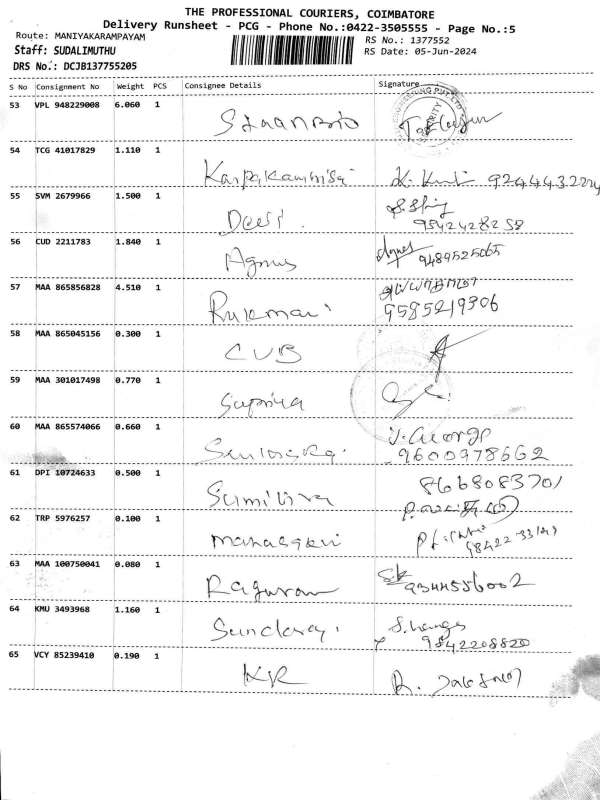 THE PROFESSIONAL COURIERS, COIMBATORE
Delivery Runsheet - PCG - Phone No.:0422-3505555 - Page No.:5
Route: MANIYAKARAMPAYAM
RS No.: 1377552
Staff: SUDALIMUTHU
RS Date: 05-Jun-2024
DRS No.: DCJB137755205
S No Consignment No Weight PCS Consignee Details Signature
53 VPL 948229008 6.060 1
54 TCG 41017829 1.110 1
55 SVM 2679966 1.500 1
9542428258
56 CUD 2211783 1.840 1 Agnus Agnes
9489525065
57 MAA 865856828 4.510 1 Rukmani
9585219306
58 MAA 865045156 0.300 1 CUB
59 MAA 301017498 0.770 1 Supriya
60 MAA 865574066 0.660 1 J. George
9600978662
61 DPI 10724633 0.500 1 8668083701
62 TRP 5976257 0.100 1
63 MAA 100750041 0.080 1 Raguram S.K
9344556002
64 KMU 3493968 1.160 1
9842208820
65 VCY 85239410 0.190 1 KR